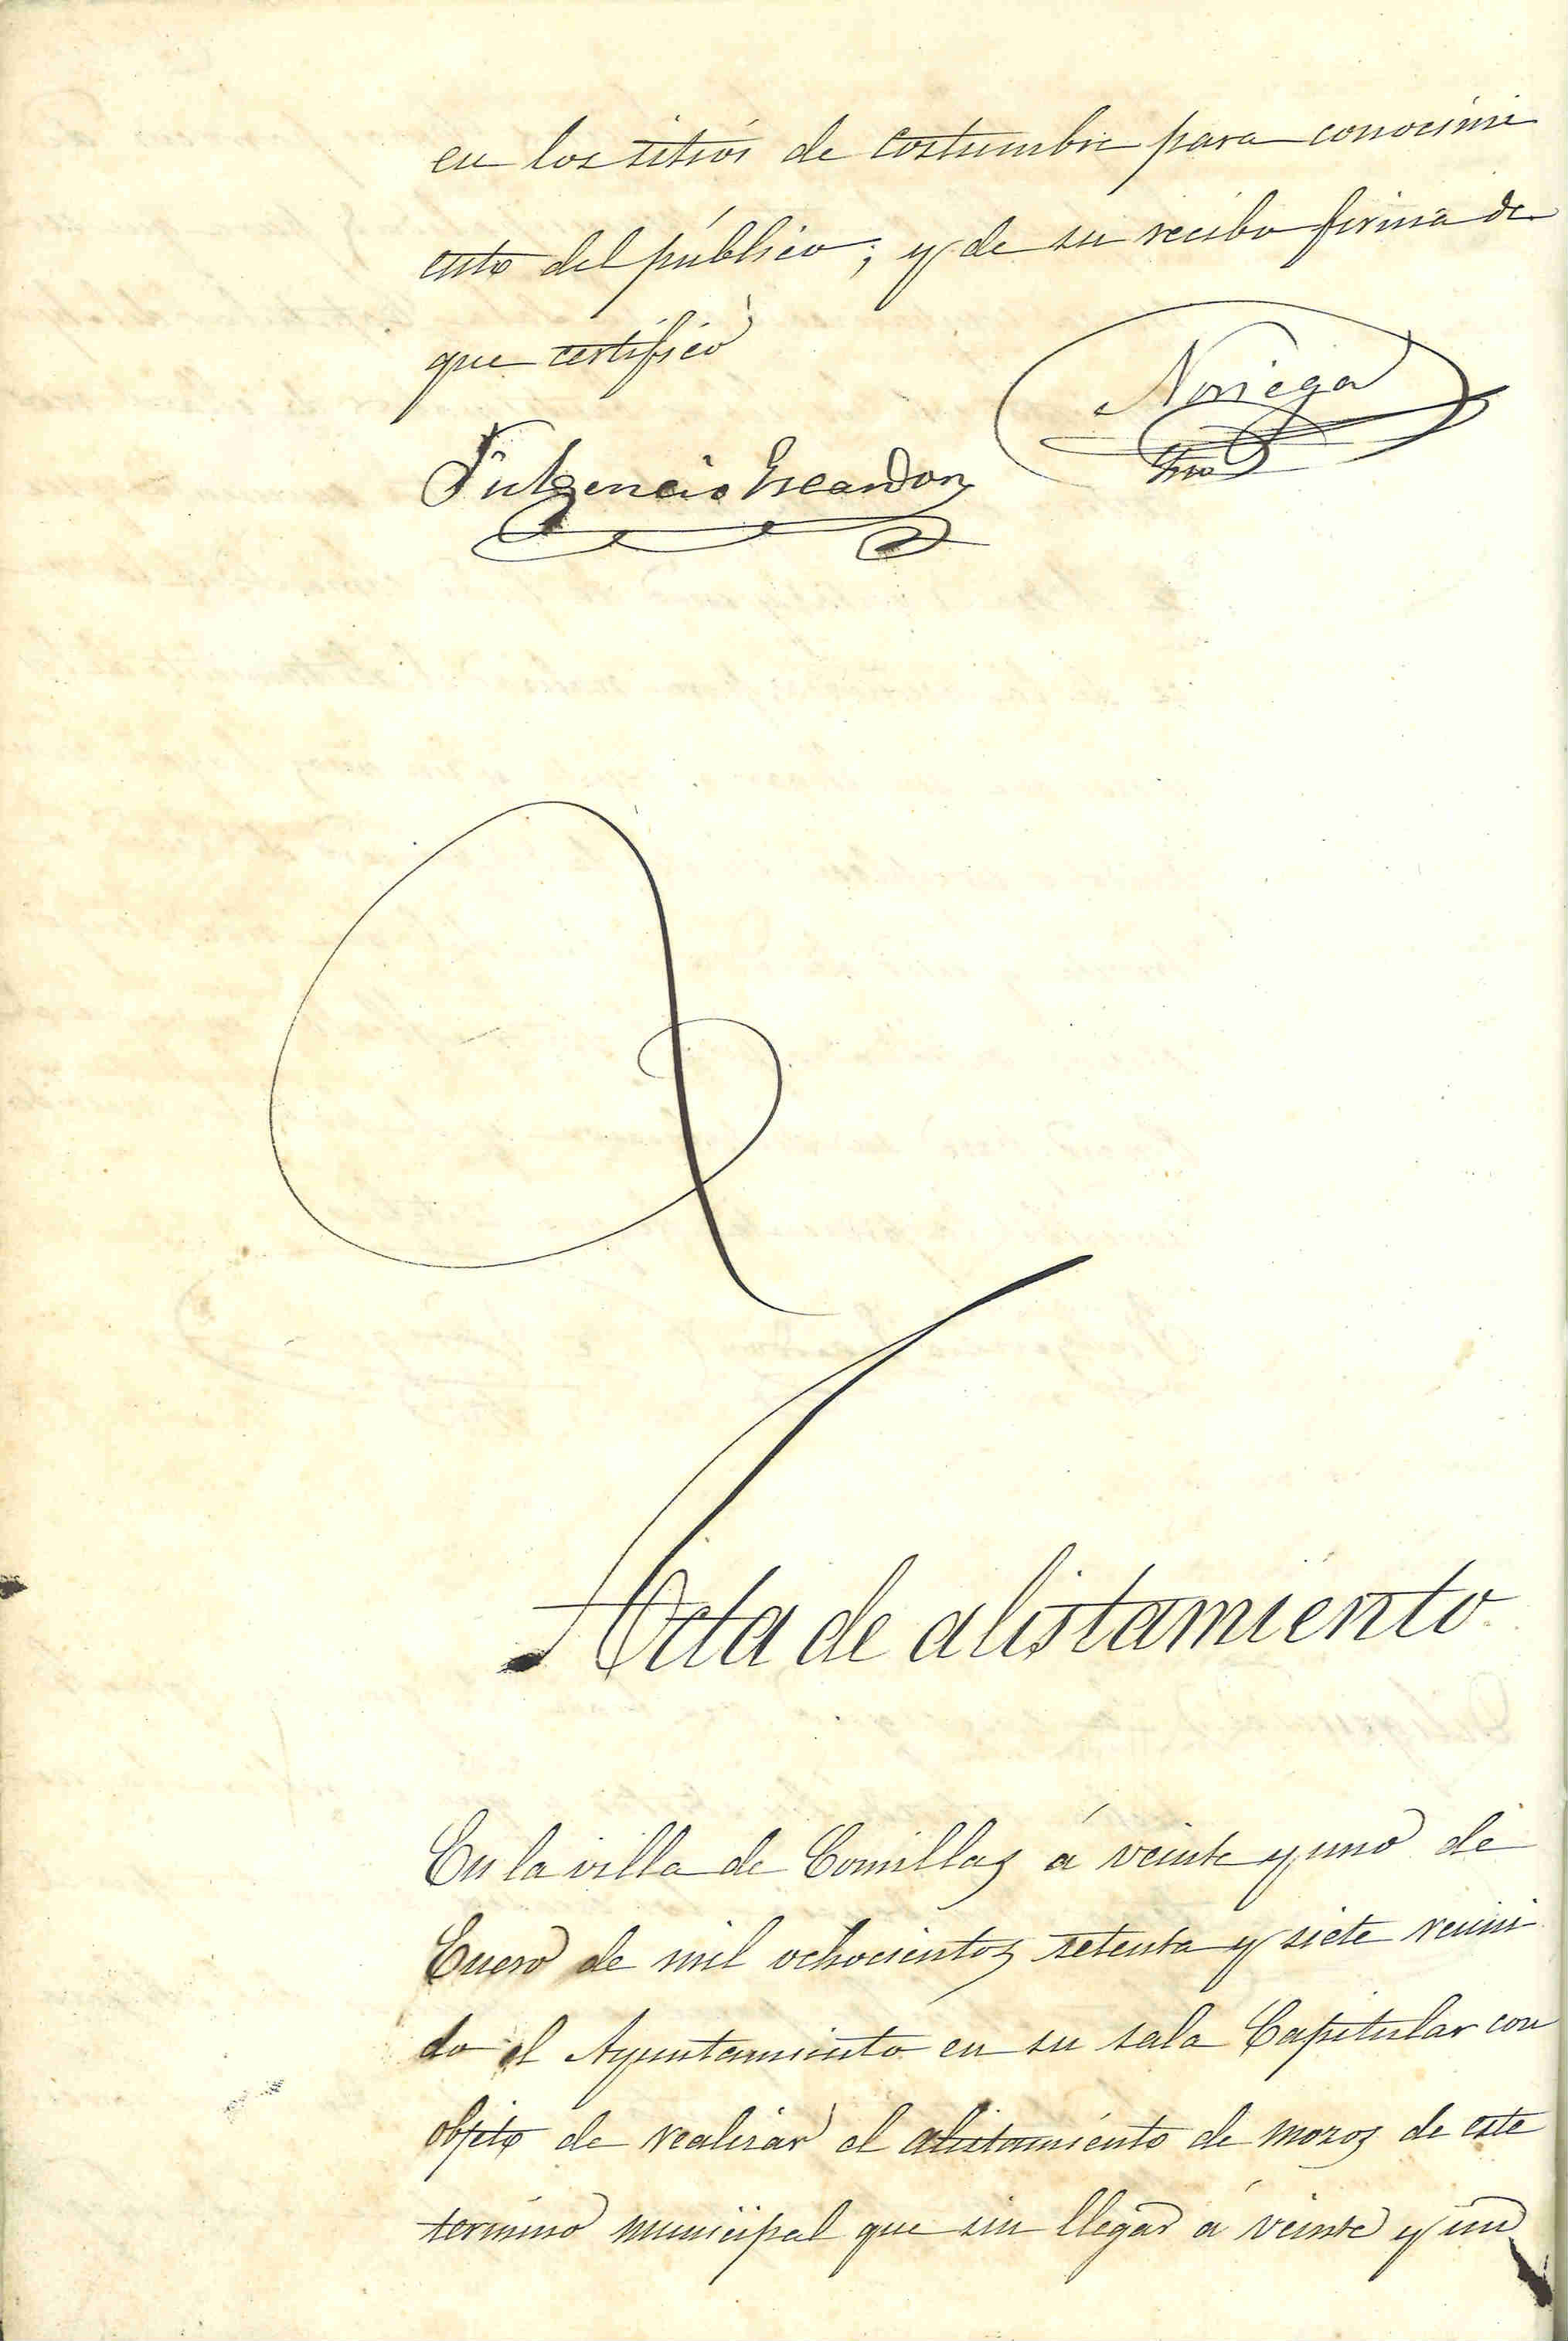 en los sitios de costumbre para conocimi
ento del público; y de su recibo firma de
que certifico
Noriega
Fulgencio Escandon
Acta de alistamiento
En la villa de Comillas á veinte y uno de
Enero de mil ochocientos setenta y siete reuni
do el Ayuntamiento en su sala Capitular con
objeto de realizar el alistamiento de mozos de este
termino municipal que sin llegar á veinte y un